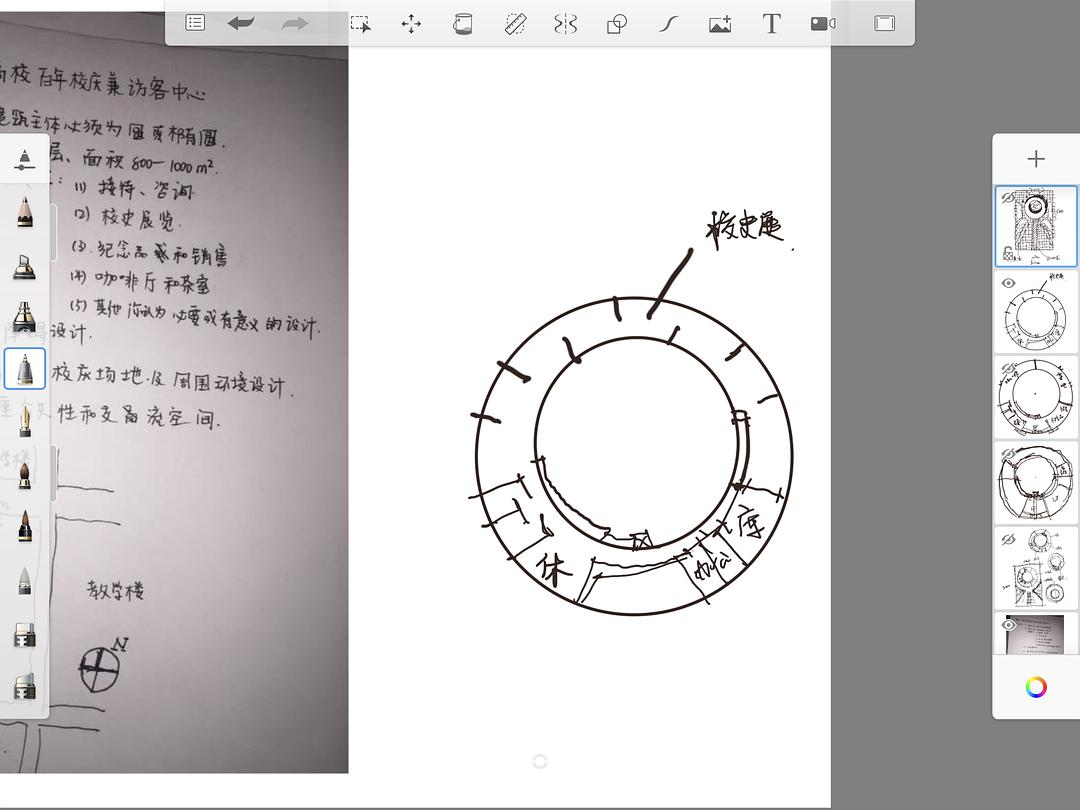 校百年校庆兼访客中心
筑主体必须为圆或椭圆.
层、面积 800-1000m².
(1) 接待、咨询
(2) 校史展览.
(3). 纪念品 和销售
(4) 咖啡厅和茶室
(5) 其他你认为必要或有意义的设计.
设计.
校庆场地.及周围环境设计.
性和交 流空间.
教学楼
N
校史展
休
办公
库
T